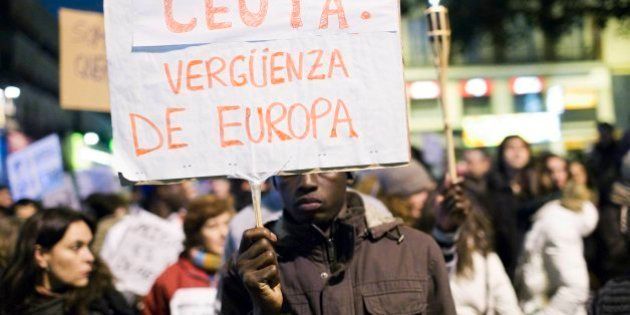 CEUTA.
VERGÜENZA
DE EUROPA